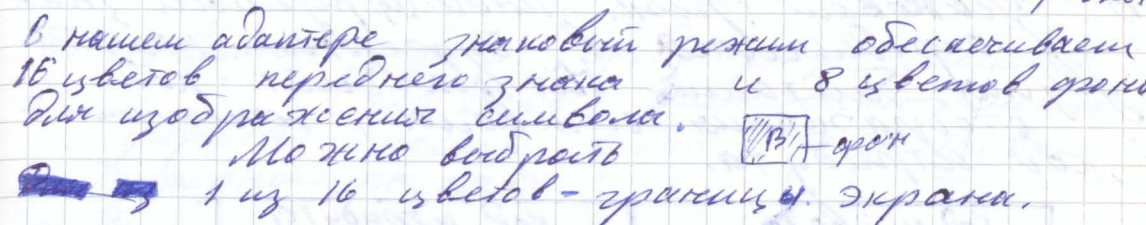 В нашем адаптере знаковый режим обеспечивает
16 цветов переднего знака и 8 цветов фона
для изображения символа.
Можно выбрать В - фон
1 из 16 цветов - границы экрана.